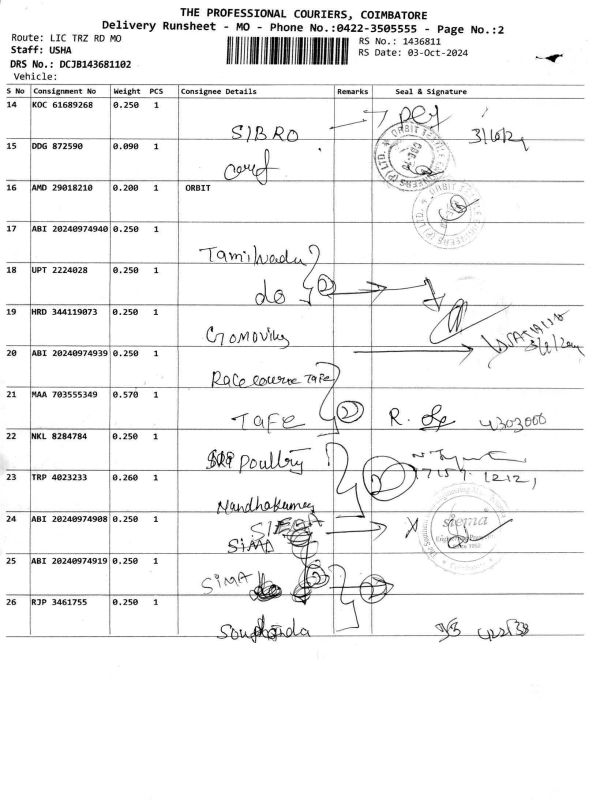 THE PROFESSIONAL COURIERS, COIMBATORE
Delivery Runsheet - MO - Phone No.:0422-3505555 - Page No.:2
Route: LIC TRZ RD MO
RS No.: 1436811
Staff: USHA
RS Date: 03-Oct-2024
DRS No.: DCJB143681102
Vehicle:
S No Consignment No Weight PCS Consignee Details Remarks Seal & Signature
14 KOC 61689268 0.250 1
SIBRO
3/10/24
15 DDG 872590 0.090 1
16 AMD 29018210 0.200 1 ORBIT
17 ABI 20240974940 0.250 1
Tamilnadu
18 UPT 2224028 0.250 1
do 2
19 HRD 344119073 0.250 1
20 ABI 20240974939 0.250 1
Race course Tafe
21 MAA 703555349 0.570 1
TAFE 2 R.
22 NKL 8284784 0.250 1
Poultry
23 TRP 4023233 0.260 1
2
24 ABI 20240974908 0.250 1
SIMA
siema
25 ABI 20240974919 0.250 1
SIMA 2
26 RJP 3461755 0.250 1